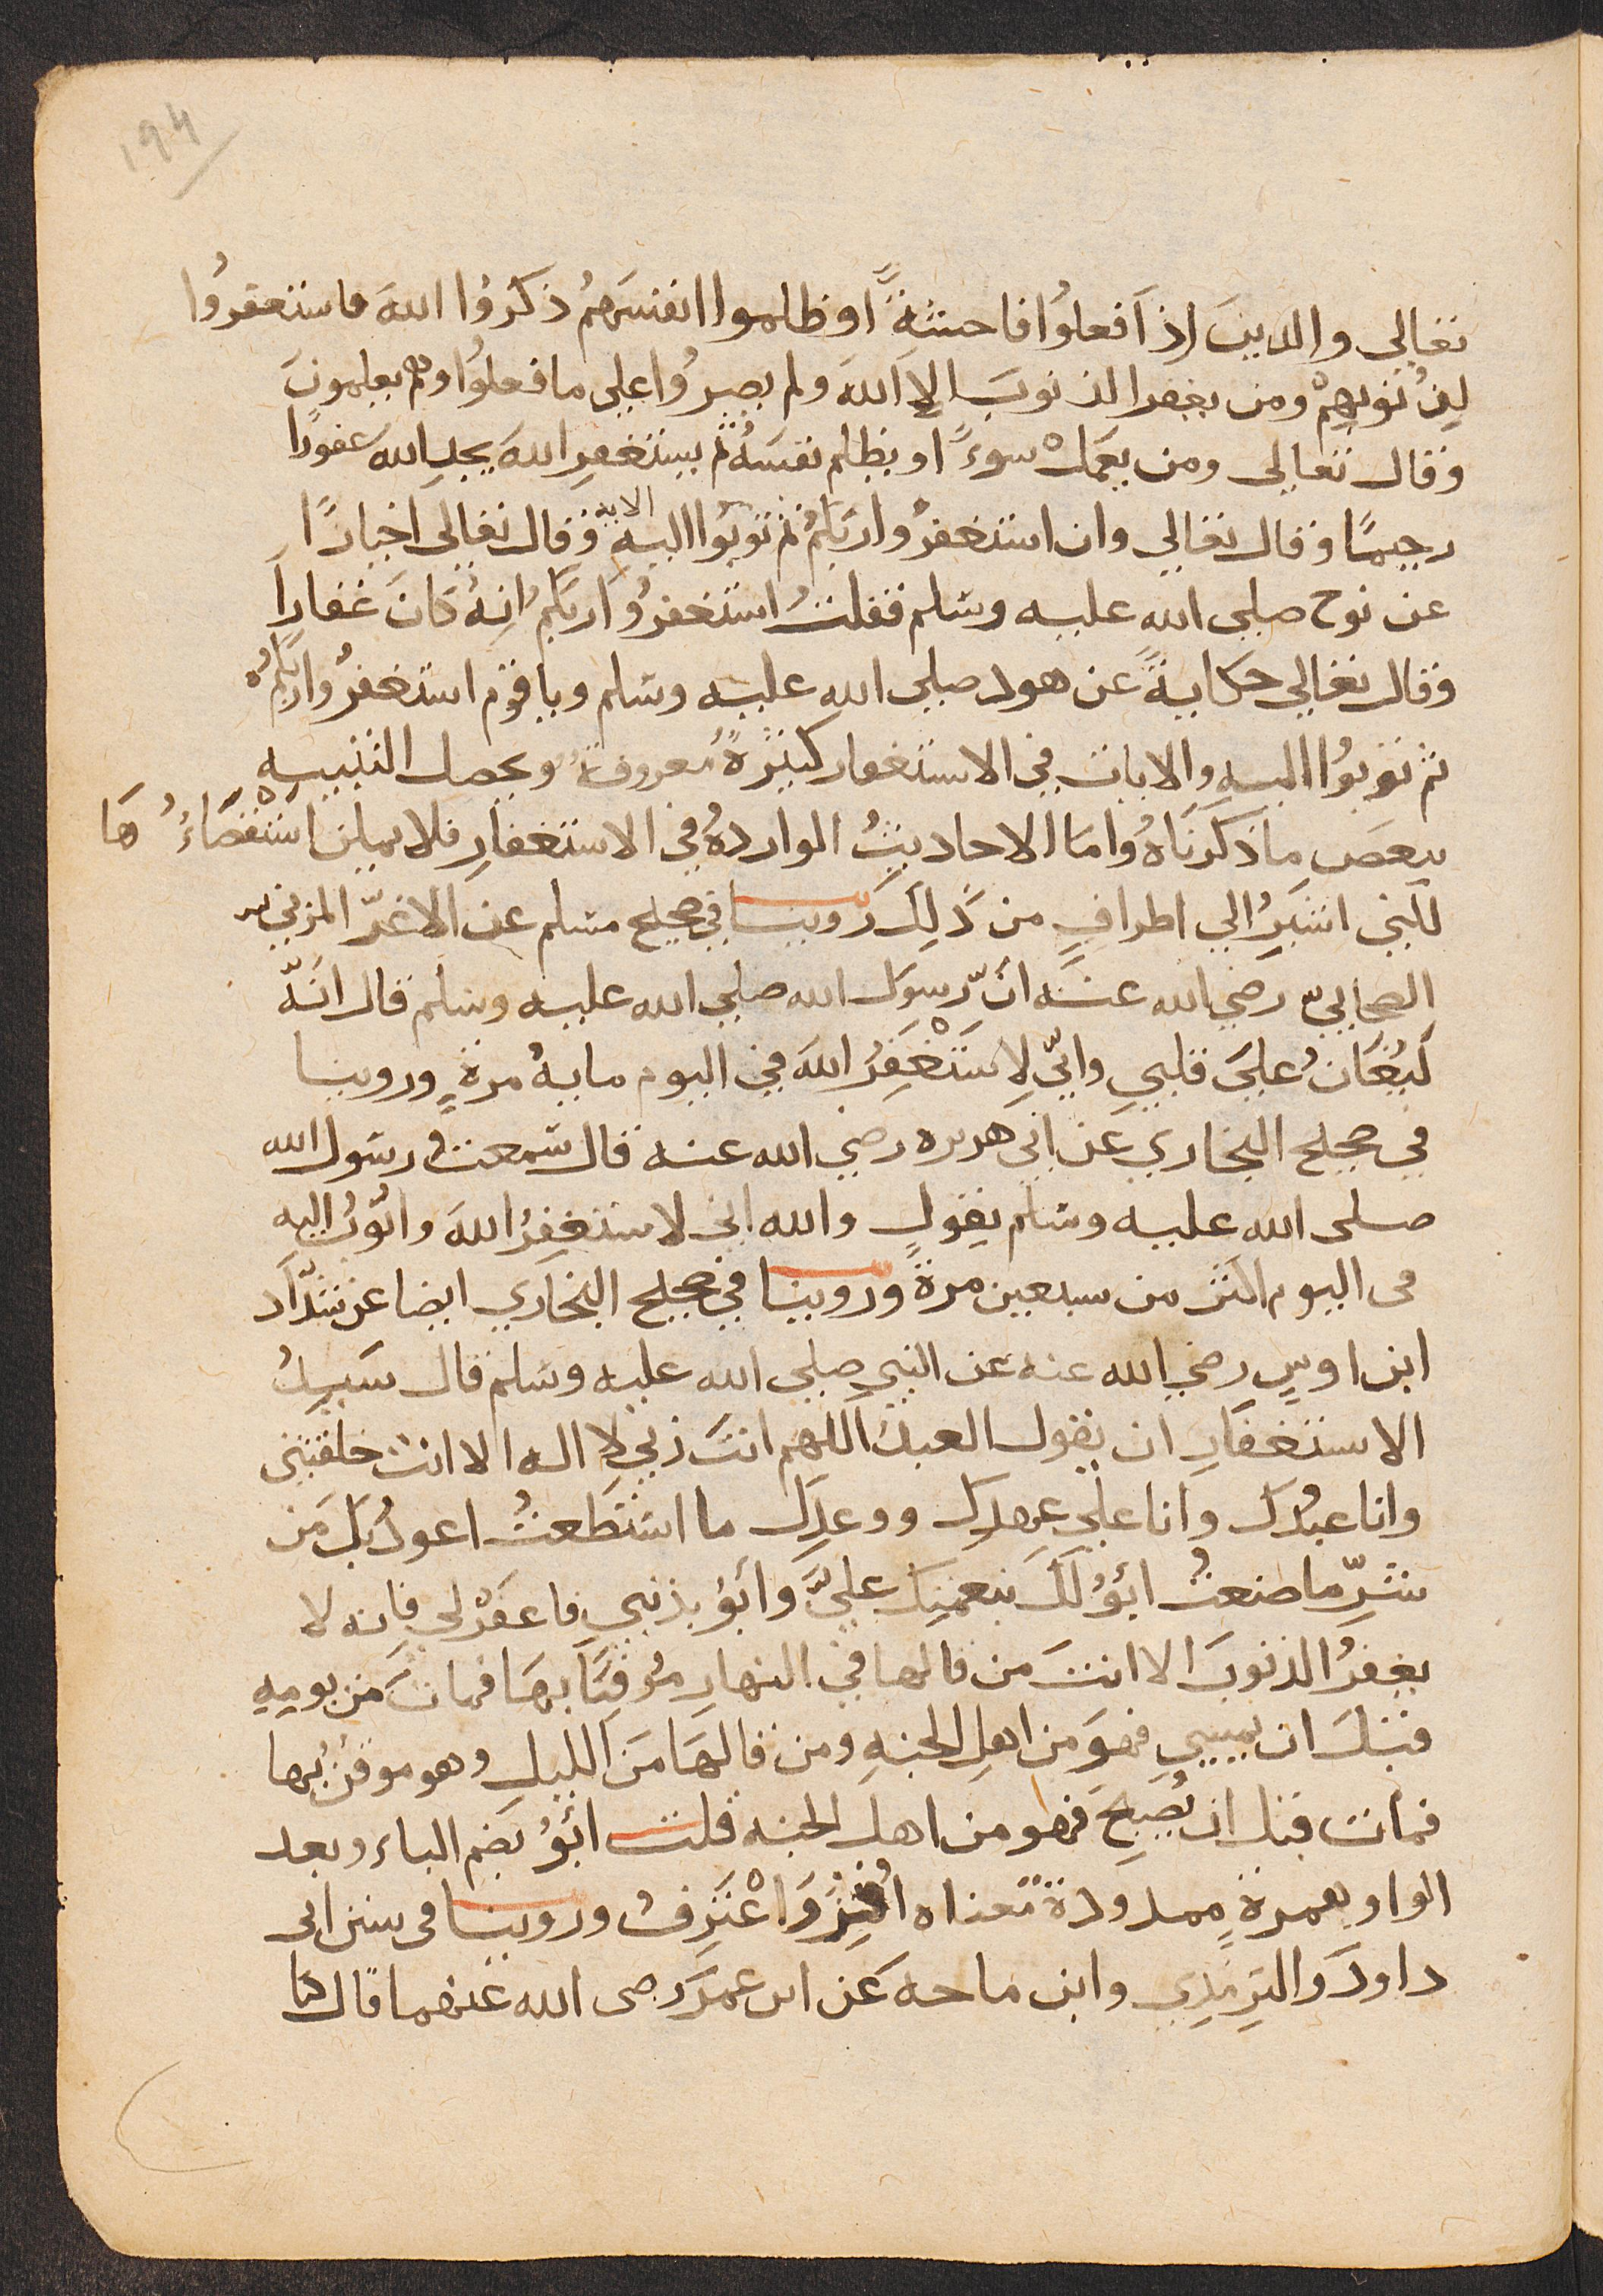 194
تعالى والذين اذا فعلوا فاحشةً او ظلموا انفسَهمُ ذكروُا اللهَ فاستغفروُا
لِذُنوبِهِمْ ومن يغفر الذنوبَ الا اللهُ ولم يصِرُّوا على ما فعلوُا وهم يعلمونَ
وقال تعالى ومن يعمَلْ سوءً او يظلم نفسَهُ ثم يستغفرِ اللهَ يجدِ اللهَ غفورًا
رحيمًا وقال تعالى وان استغفرُوا ربَكمُ ثم توبُوا اليهِ الاية وقال تعالى اخبارًا
عن نوح صلى الله عليه وسلم فقلتُ استغفرُوا ربَكمُ انهُ كانَ غفاراً
وقال تعالى حكايةً عن هود صلى الله عليه وسلم ويا قوم استغفرُوا ربكمُ
ثم توبُوا اليهِ والايات في الاستغفار كثيرةٌ معروفةٌ ويحصل التنبيهِ
ببعضِ ما ذكرنَاهُ واما الاحاديثُ الواردهُ في الاستغفارِ فلا يمكن استقصَاءُهَا
لكني اشيرُ الي اطرافٍ من ذَلِكَ رَوينا في صحيح مسلم عن الاغرّ المزني
الصحابيّ رضي الله عنه انّ رسول الله صلى الله عليه وسلم قال انّه
لَيُغَانُ عليَ قلبي وانّي لاَسَتَغْفِرُ اللهَ في اليوم مايهُ مرةٍ وروينا
في صحيح البخاري عن ابي هريره رضي الله عنه قال سمعت رسول الله
صلى الله عليه وسلم يقول والله اني لاستغفِرُ اللهَ واتوُبُ اليه
في اليوم اكثر من سبعين مرةً وروينا في صحيح البخاري ايضا عن شدّاد
ابن اوسٍ رضي الله عنه عن النبي صلى الله عليه وسلم قال سَيِدُ
الاستغفارِ ان يقول العبدُ اللهم انتَ ربي لا اله الا انت خلقتني
وانا عبدُكَ وانا علي عهدِكَ ووعدِكَ ما استطَعتُ اعوذُ بِكَ مَن
شرِّ ما صنعتُ ابُوُ لَكَ بنعمتِكَ عليَّ وَابُوُ بذنبي فاغفَرْ لي فانه لا
يغفرُ الذنوبَ الا انتَ من قالها في النهارِ مُوقِنًا بهَا فمات مَن يومِهِ
قبَل ان يمسي فهوَ من اهلِ الجنهِ ومن قالَهَا مَن الليلِ وهو موقِنُ بها
فمات قبل ان يُصبِحَ فهو من اهل الجنه قلت ابُوُ بضم الباء وبعد
الواو همزةٍ ممدودة معناه اُقِرُّ وَاعْتَرِفُ وروينا في سنن ابي
داودَ والتِرمِذِي وابن ماجه عَن ابن عمَر رضى الله عنهما قال كنا